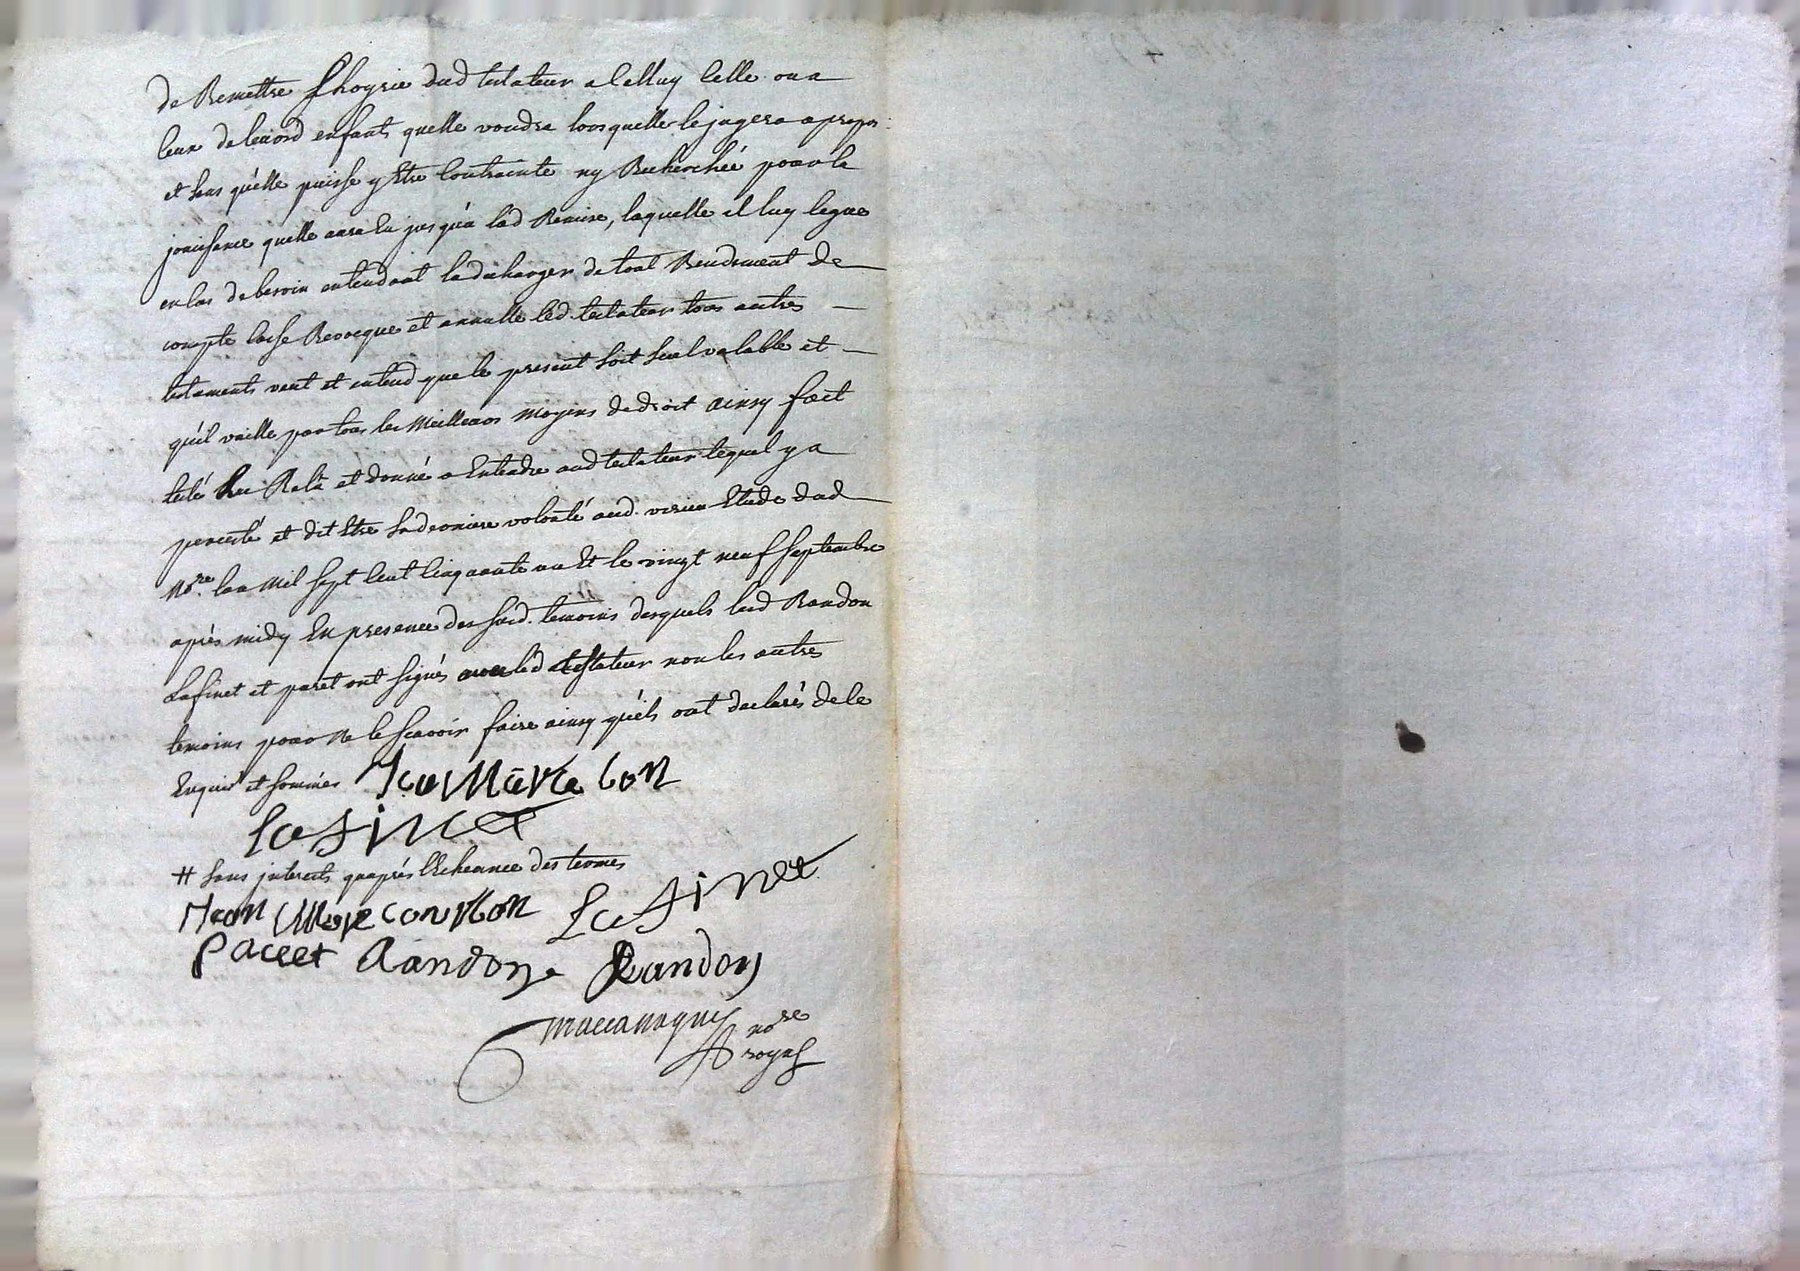 de Remettre Lhoyrie dud testateur a Celluy Celle ou a
Ceux de leurd enfants quelle voudra lorsquelle le jugera apropos
et sans qu'elle puisse y Etre Contrainte ny Recherchée pour la
jouissance quelle aura Eu jusqu'a lad Remise, laquelle il luy legue
en Cas de besoin entendant la decharger de tout Rendement de
compte Casse Revocque et annulle led. testateur tous autres
testaments veut et entend que le present soit seul valable et
qu'il vaille par tous les Meilleurs moyens de droit ainsy fait
et donné a Entendre aud testateur lequel y a
percisté et dit Etre sa derniere volonté aud. Etude dud
Nore. lan Mil sept Cent Cinquante un Et le vingt neuf septembre
après midy En presence des susd. temoins desquels lesd Randon
Lafinet et paret ont signés avec led testateur non les autres
temoins pour Ne le scavoir faire ainsy qu'ils ont declarés de Ce
Enquis et sommés
Lafinet
# sans interets quaprés l'Echeance des termes
Jean Lafinet
Paret Randon Randon
nore
royal